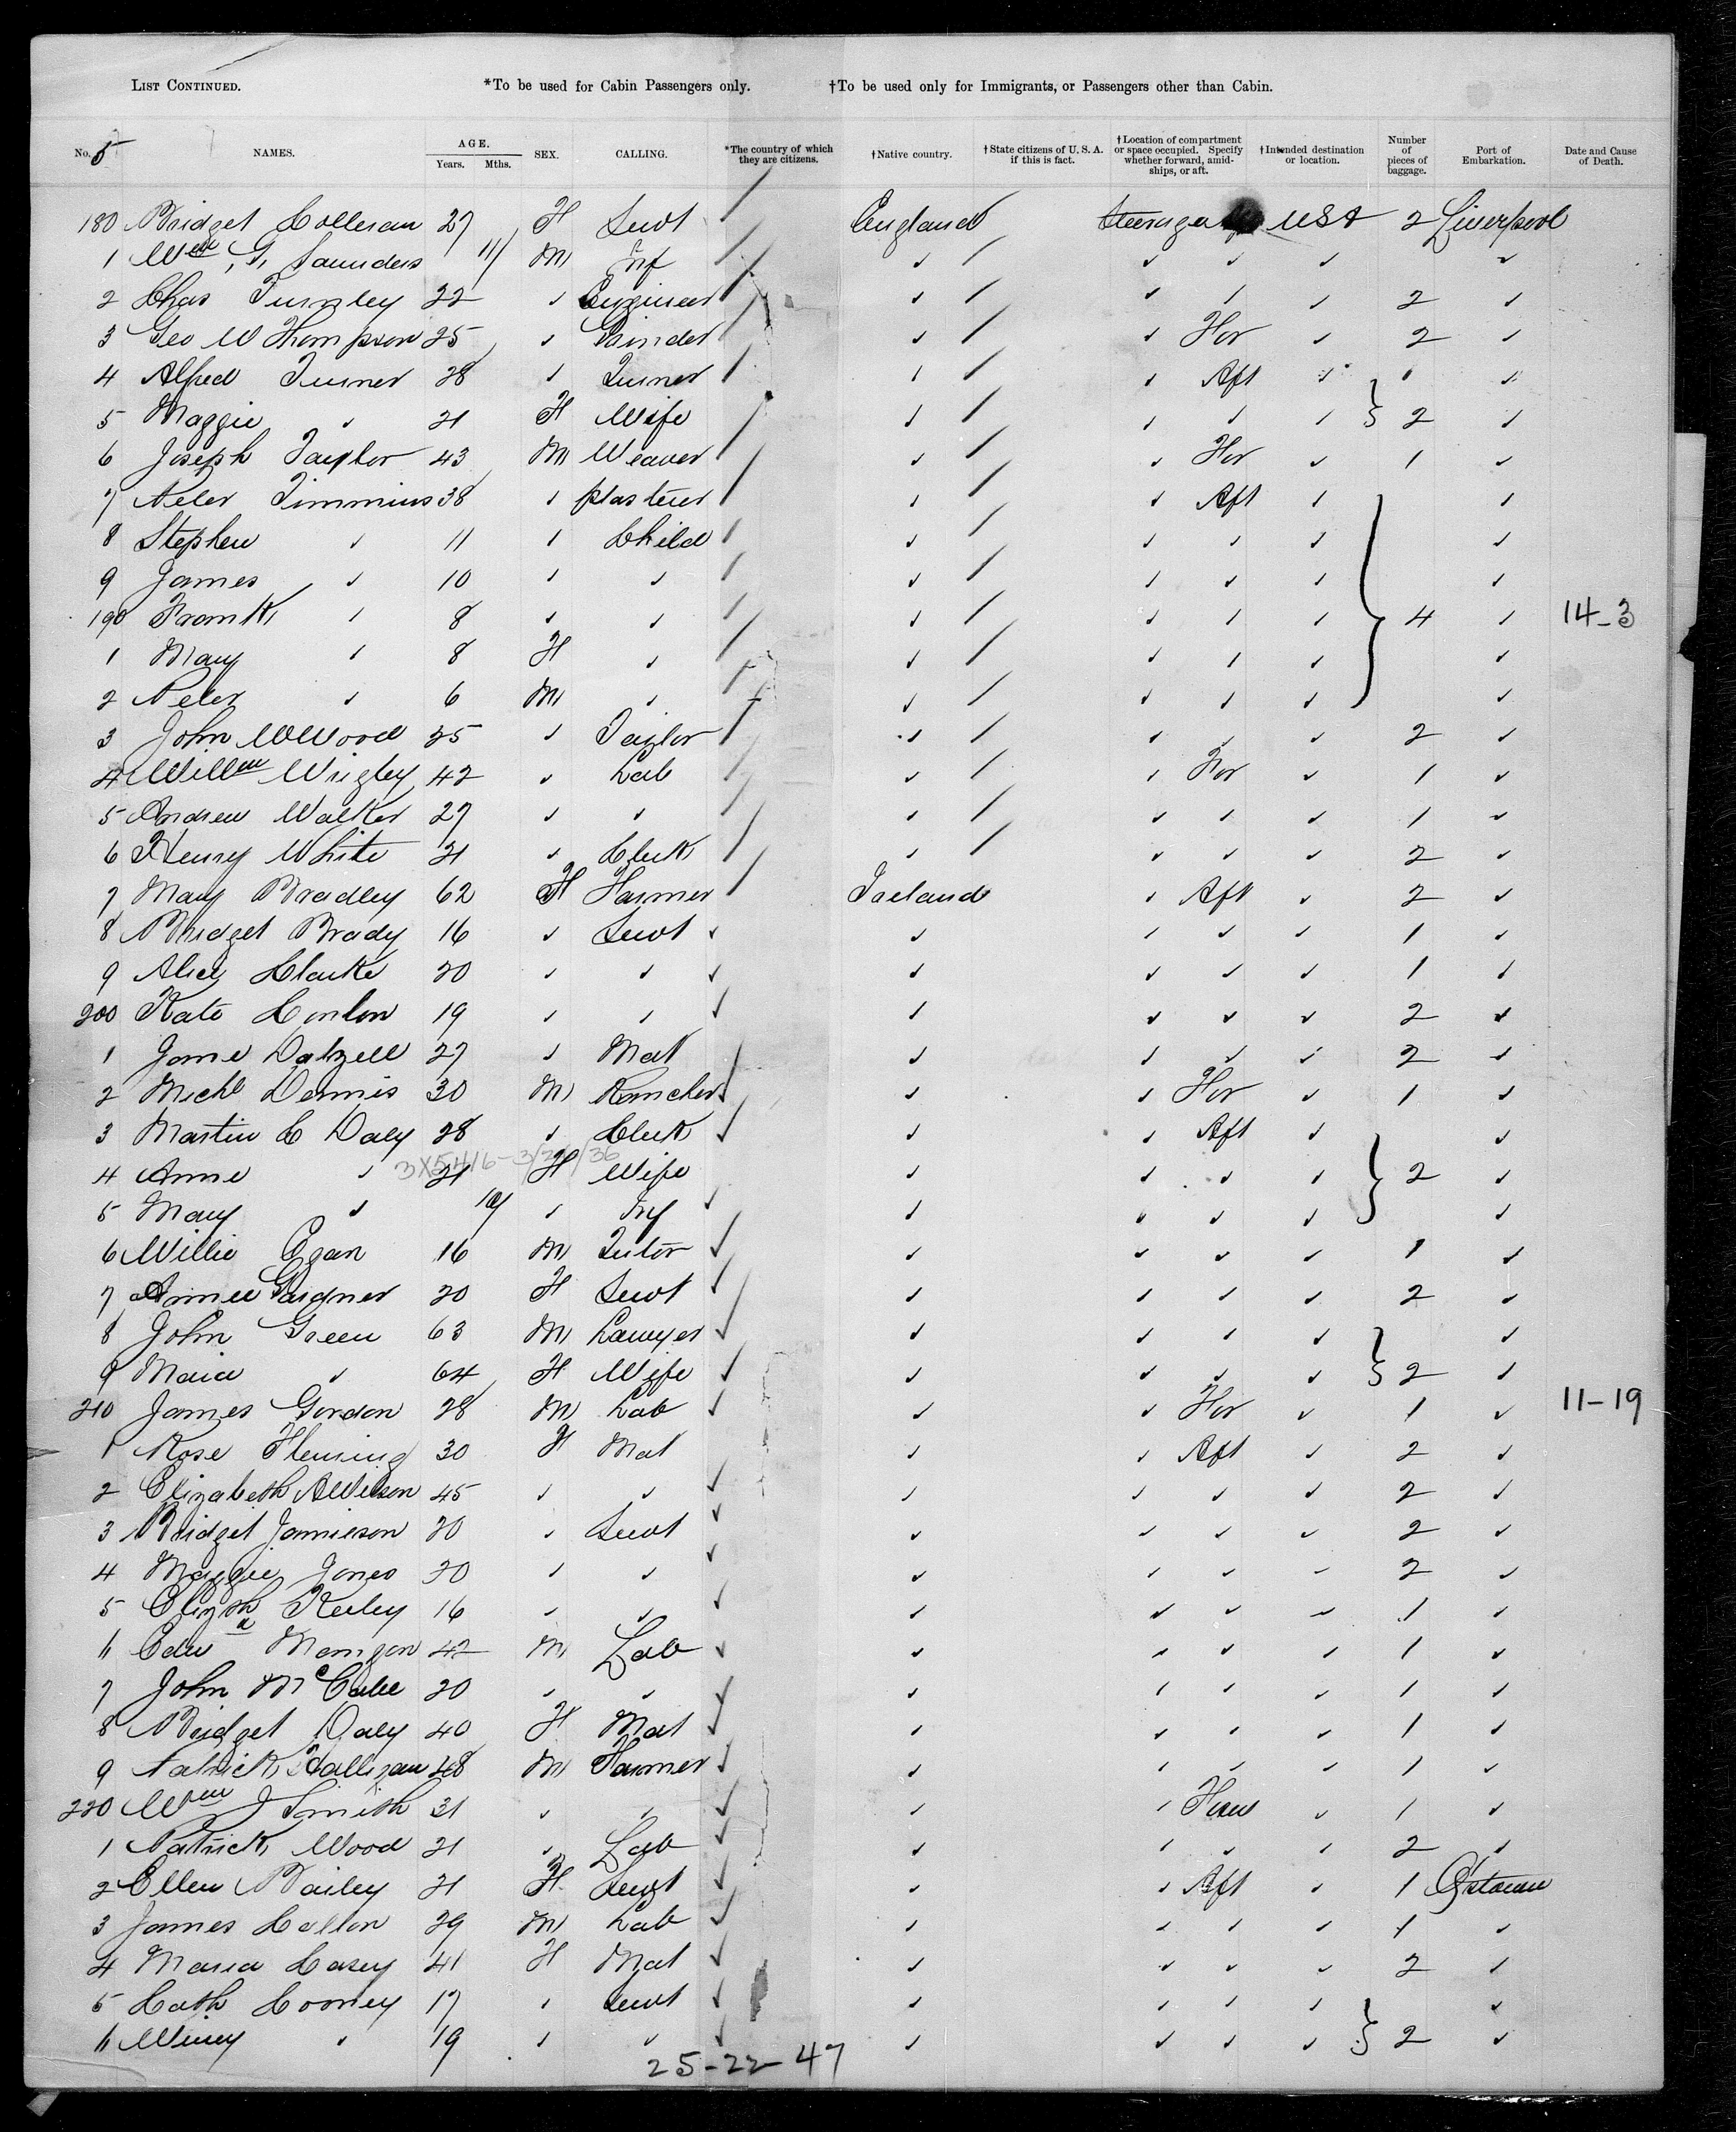 LIST CONTINUED. *To be used for Cabin Passengers only. †To be used only for Immigrants, or Passengers other than Cabin.
No. 5 NAMES. AGE. Years. Mths. SEX. CALLING. *The country of which they are citizens. †Native country. †State citizens of U. S. A. if this is fact. †Location of compartment or space occupied. Specify whether forward, amidships, or aft. †Intended destination or location. Number of pieces of baggage. Port of Embarkation. Date and Cause of Death.
180 Bridget Colleran 27 F Servt England Steerage USA 2 Liverpool
1 Wm G. Saunders 11 M Inf ✓ ✓ ✓ ✓ ✓
2 Chas Tungley 22 ✓ Engineer ✓ ✓ ✓ ✓ 2 ✓
3 Geo W Thompson 25 ✓ Grinder ✓ ✓ For ✓ 2 ✓
4 Alfred Turner 28 ✓ Turner ✓ ✓ Aft ✓ ✓ ✓
5 Maggie ✓ 21 F Wife ✓ ✓ ✓ ✓ 2 ✓
6 Joseph Taylor 43 M Weaver ✓ ✓ For ✓ 1 ✓
7 Peter Timmins 38 ✓ plasterer ✓ ✓ Aft ✓ ✓
8 Stephen ✓ 11 ✓ Child ✓ ✓ ✓ ✓ ✓
9 James ✓ 10 ✓ ✓ ✓ ✓ ✓ ✓ ✓
190 Frank ✓ 8 ✓ ✓ ✓ ✓ ✓ ✓ 4 ✓ 14-3
1 Mary ✓ 8 F ✓ ✓ ✓ ✓ ✓ ✓
2 Peter ✓ 6 M ✓ ✓ ✓ ✓ ✓ ✓
3 John W Wood 25 ✓ Tailor ✓ ✓ ✓ ✓ 2 ✓
4 Willm Wrigley 42 ✓ Lab ✓ ✓ For ✓ 1 ✓
5 Andrew Walker 27 ✓ ✓ ✓ ✓ ✓ ✓ 1 ✓
6 Henry White 21 ✓ Clerk ✓ ✓ ✓ ✓ 2 ✓
7 Mary Bradley 62 F Farmer Ireland ✓ Aft ✓ 2 ✓
8 Bridget Brady 16 ✓ Servt ✓ ✓ ✓ ✓ ✓ 1 ✓
9 Alice Clarke 20 ✓ ✓ ✓ ✓ ✓ ✓ ✓ 1 ✓
200 Kate Conlon 19 ✓ ✓ ✓ ✓ ✓ ✓ ✓ 2 ✓
1 Jane Dalzell 27 ✓ Mat ✓ ✓ ✓ ✓ 2 ✓
2 Michl Dennis 30 M Rancher ✓ ✓ ✓ For ✓ 1 ✓
3 Martin C Daly 28 ✓ Clerk ✓ ✓ ✓ Aft ✓ ✓
4 Anne ✓ 21 F Wife ✓ ✓ ✓ ✓ 2 ✓
5 Mary ✓ 10 ✓ Inf ✓ ✓ ✓ ✓ ✓ ✓
6 Willie Egan 16 M Tutor ✓ ✓ ✓ ✓ ✓ 1 ✓
7 Annie Gardner 20 F Servt ✓ ✓ ✓ ✓ ✓ 2 ✓
8 John Green 63 M Lawyer ✓ ✓ ✓ ✓ ✓ ✓
9 Maria ✓ 64 F Wife ✓ ✓ ✓ ✓ ✓ 2 ✓
210 James Gordon 28 M Lab ✓ ✓ ✓ For ✓ 1 ✓ 11-19
1 Rose Fleming 30 F Mat ✓ ✓ Aft ✓ 2 ✓
2 Elizabeth A Wilson 45 ✓ ✓ ✓ ✓ ✓ ✓ ✓ 2 ✓
3 Bridget Jamieson 20 ✓ Servt ✓ ✓ ✓ ✓ ✓ 2 ✓
4 Maggie Jones 20 ✓ ✓ ✓ ✓ ✓ ✓ ✓ 2 ✓
5 Elizth Keiley 16 ✓ ✓ ✓ ✓ ✓ ✓ ✓ 1 ✓
6 Edwd Mangan 42 M Lab ✓ ✓ ✓ ✓ ✓ 1 ✓
7 John McCabe 20 ✓ ✓ ✓ ✓ ✓ ✓ ✓ 1 ✓
8 Bridget Daly 40 F Mat ✓ ✓ ✓ ✓ ✓ 1 ✓
9 Patrick Halligan 48 M Farmer ✓ ✓ ✓ ✓ ✓ 1 ✓
220 Wm J Smith 31 ✓ ✓ ✓ ✓ ✓ ✓ 1 ✓
1 Patrick Wood 21 ✓ Lab ✓ ✓ ✓ ✓ ✓ 2 ✓
2 Ellen Bailey 21 F Servt ✓ ✓ ✓ Aft ✓ 1 Qstown
3 James Callan 29 M Lab ✓ ✓ ✓ ✓ ✓ 1 ✓
4 Maria Casey 41 F Mat ✓ ✓ ✓ ✓ ✓ 2 ✓
5 Cath Cooney 17 ✓ Servt ✓ ✓ ✓ ✓ ✓ ✓
6 Winey ✓ 19 ✓ ✓ ✓ ✓ ✓ ✓ ✓ 2 ✓
25-22-47